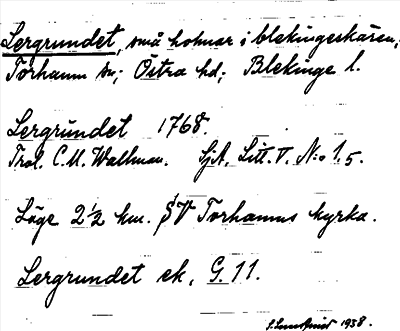 Lergrundet, små holmar i blekingeskären;
Torhamn sn; Östra hd; Blekinge l.
Lergrundet 1768.
Trol. C.U. Wallman. SjA. Litt. V. N:o 1.5.
Läge 2½ km. SV Torhamns kyrka.
Lergrundet ek. G.11.
1938.